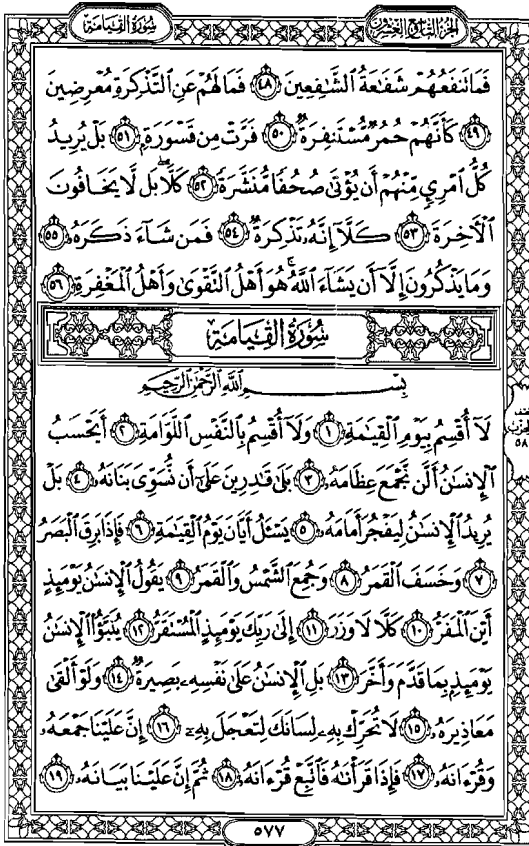 الجزء التاسع والعشرون
سورة القيامة
فَمَا تَنفَعُهُمْ شَفَٰعَةُ ٱلشَّٰفِعِينَ ٤٨ فَمَا لَهُمْ عَنِ ٱلتَّذْكِرَةِ مُعْرِضِينَ
٤٩ كَأَنَّهُمْ حُمُرٌ مُّسْتَنفِرَةٌ ٥٠ فَرَّتْ مِن قَسْوَرَةٍۭ ٥١ بَلْ يُرِيدُ
كُلُّ ٱمْرِئٍ مِّنْهُمْ أَن يُؤْتَىٰ صُحُفًا مُّنَشَّرَةً ٥٢ كَلَّا ۖ بَل لَّا يَخَافُونَ
ٱلْءَاخِرَةَ ٥٣ كَلَّآ إِنَّهُۥ تَذْكِرَةٌ ٥٤ فَمَن شَآءَ ذَكَرَهُۥ ٥٥
وَمَا يَذْكُرُونَ إِلَّآ أَن يَشَآءَ ٱللَّهُ ۚ هُوَ أَهْلُ ٱلتَّقْوَىٰ وَأَهْلُ ٱلْمَغْفِرَةِ ٥٦
سُورَةُ ٱلْقِيَامَةِ
بِسْمِ ٱللَّهِ ٱلرَّحْمَٰنِ ٱلرَّحِيمِ
لَآ أُقْسِمُ بِيَوْمِ ٱلْقِيَٰمَةِ ١ وَلَآ أُقْسِمُ بِٱلنَّفْسِ ٱللَّوَّامَةِ ٢ أَيَحْسَبُ
ٱلْإِنسَٰنُ أَلَّن نَّجْمَعَ عِظَامَهُۥ ٣ بَلَىٰ قَٰدِرِينَ عَلَىٰٓ أَن نُّسَوِّىَ بَنَانَهُۥ ٤ بَلْ
يُرِيدُ ٱلْإِنسَٰنُ لِيَفْجُرَ أَمَامَهُۥ ٥ يَسْـَٔلُ أَيَّانَ يَوْمُ ٱلْقِيَٰمَةِ ٦ فَإِذَا بَرِقَ ٱلْبَصَرُ
٧ وَخَسَفَ ٱلْقَمَرُ ٨ وَجُمِعَ ٱلشَّمْسُ وَٱلْقَمَرُ ٩ يَقُولُ ٱلْإِنسَٰنُ يَوْمَئِذٍ
أَيْنَ ٱلْمَفَرُّ ١٠ كَلَّا لَا وَزَرَ ١١ إِلَىٰ رَبِّكَ يَوْمَئِذٍ ٱلْمُسْتَقَرُّ ١٢ يُنَبَّؤُا۟ ٱلْإِنسَٰنُ
يَوْمَئِذٍۭ بِمَا قَدَّمَ وَأَخَّرَ ١٣ بَلِ ٱلْإِنسَٰنُ عَلَىٰ نَفْسِهِۦ بَصِيرَةٌ ١٤ وَلَوْ أَلْقَىٰ
مَعَاذِيرَهُۥ ١٥ لَا تُحَرِّكْ بِهِۦ لِسَانَكَ لِتَعْجَلَ بِهِۦٓ ١٦ إِنَّ عَلَيْنَا جَمْعَهُۥ
وَقُرْءَانَهُۥ ١٧ فَإِذَا قَرَأْنَٰهُ فَٱتَّبِعْ قُرْءَانَهُۥ ١٨ ثُمَّ إِنَّ عَلَيْنَا بَيَانَهُۥ ١٩
نصف
الحزب
٥٨
٥٧٧